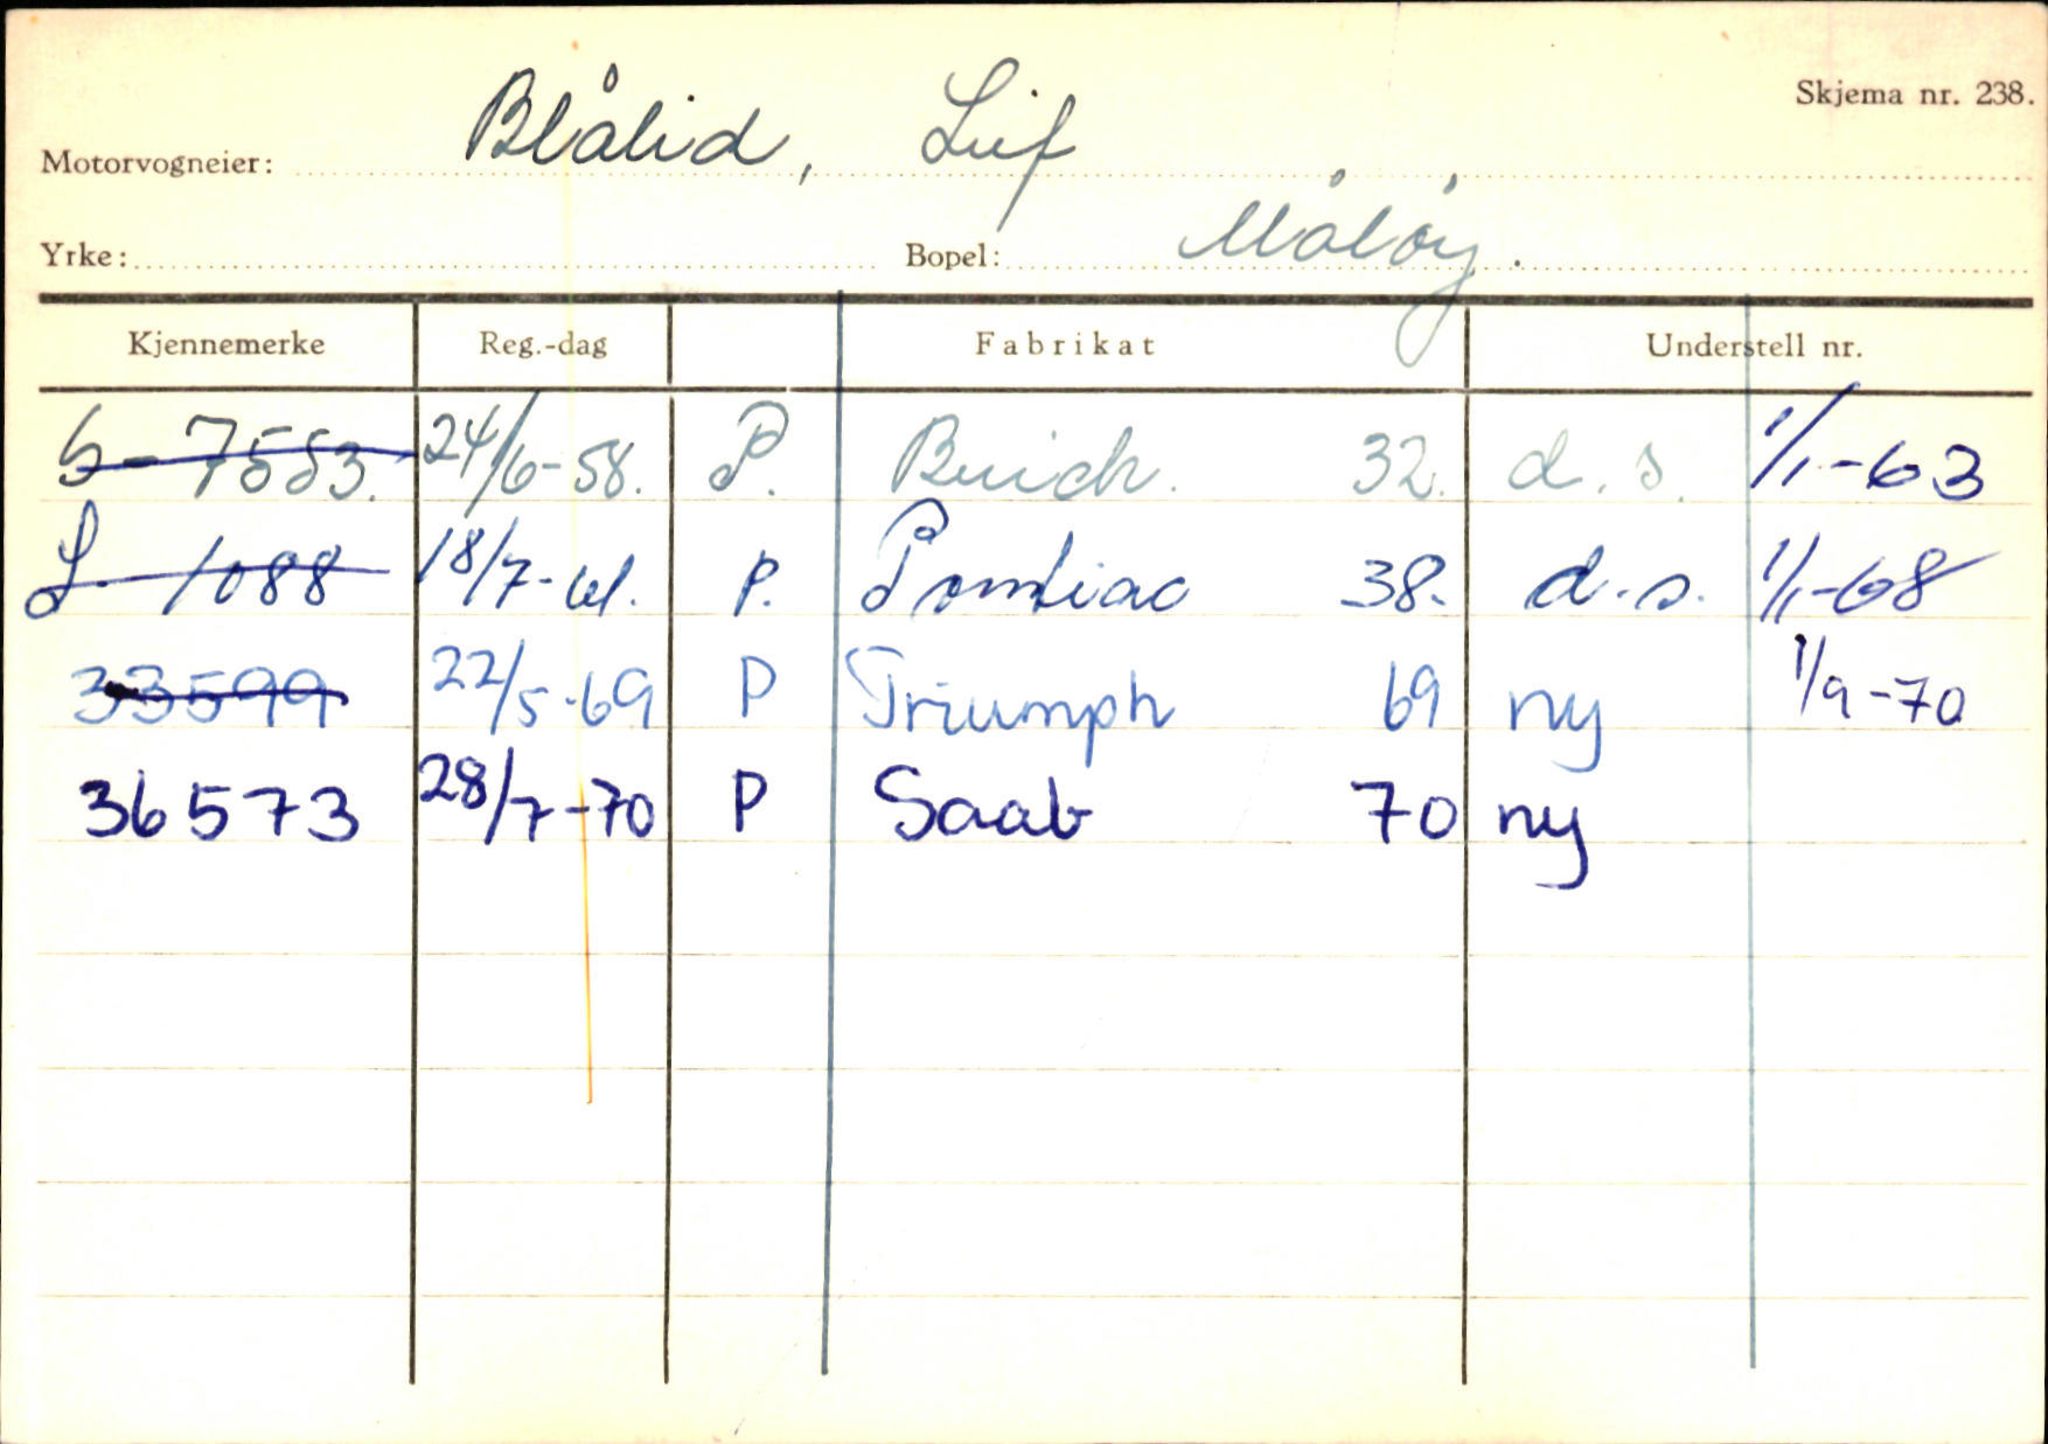 Skjema nr. 238.
Motorvogneier: Blålid, Leif
Yrke: Bopel: Måløy.
Kjennemerke Reg.-dag Fabrikat Understell nr.
S-7553. 24/6-58. P. Buick. 32. d.s. 1/1-63
S- 1088 18/7-61. P. Pontiac 38. d.s. 1/1-68
33599 22/5-69 P Triumph 69 ny 1/9-70
36573 28/7-70 P Saab 70 ny